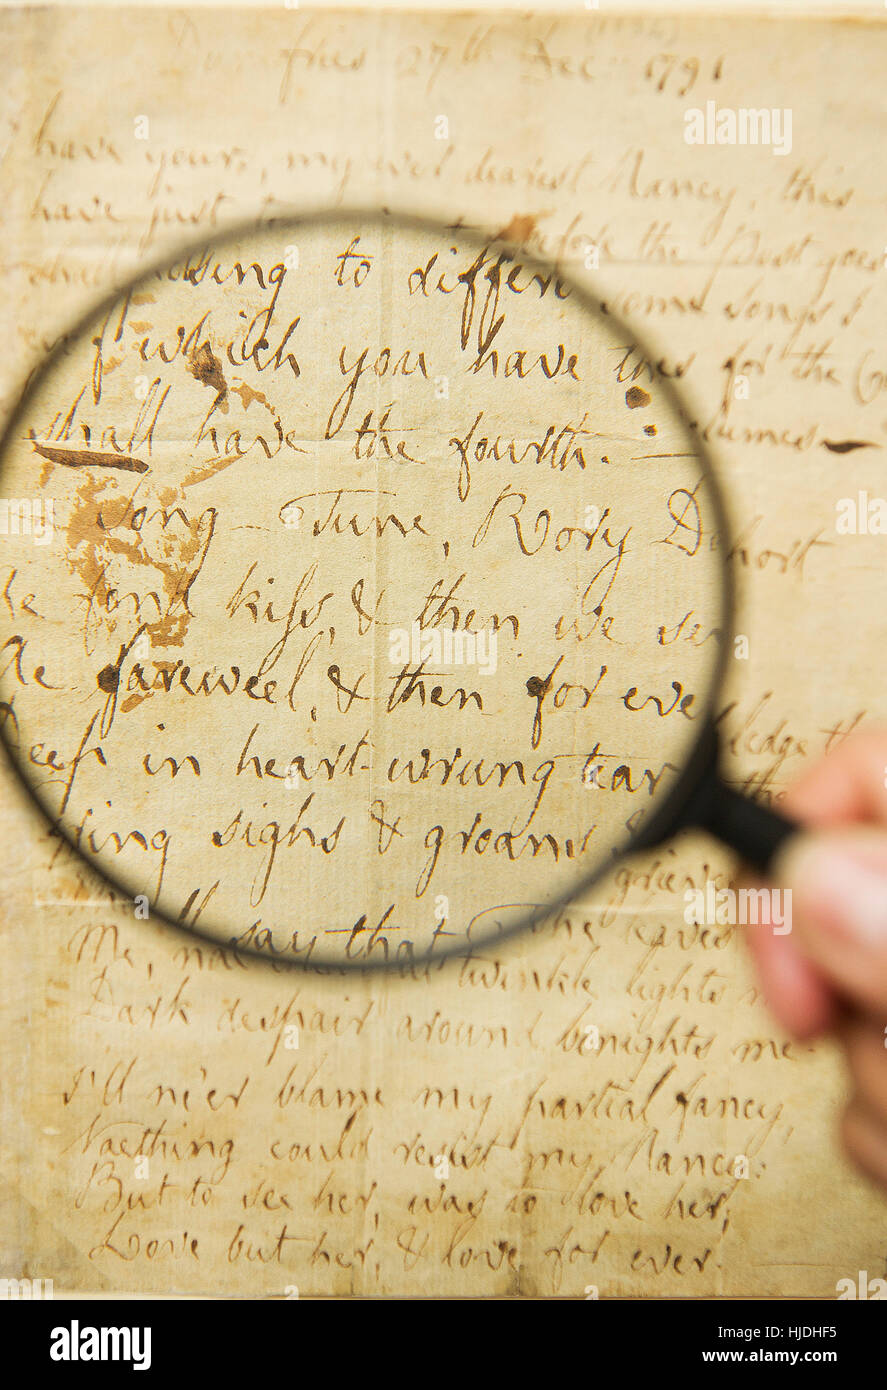 Dumfries 27th Dec 1791
have yours, my ever dearest Nancy, this
have just
before the Post goes
shall
posing to different some songs
of which you have this for the
shall have the fourth.
Song - Tune, Rory D hort
Ae fond kiss, & then we se
Ae fareweel, & then for eve
Deep in heart-wrung tear pledge th
ring sighs & groans
the
grieve
say that the leaves
Me, nae twinkle lights m
Dark despair around benights me.
I'll ne'er blame my partial fancy,
Naething could resist my Nancy:
But to see her, was to love her;
Love but her, & love for ever.
alamy
alamy
alamy
alamy
Image ID: HJDHF5
www.alamy.com